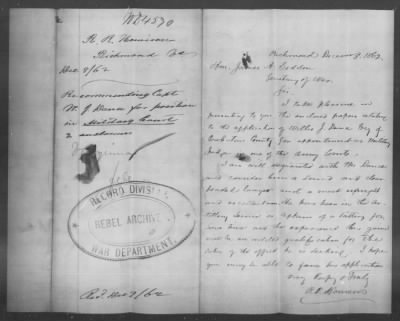 WD 4570
Richmond Va
Dec 9/62
Recommending Capt
W. J. for position
in Military Court
2 enclosures
Virginia
RECORD DIVISION
REBEL ARCHIVES
WAR DEPARTMENT.
Recd Dec 9/62
Richmond 1862
Hon. James A. Seddon
Secretary of War
Sir
I take pleasure in
presenting to you the enclosed papers relating
to the application of Willis J. Esq of
County Geo appointment as Military
Judge in one of the Army Courts.
I am well acquainted with Mr
and consider him a sound and clear
headed lawyer and a most upright
and man. He has been in the
service as Captain of a battery for
some time and his experience there gained
will be an added qualification for the
duties of the office he is seeking. I hope
you may be able to favor his application
Very Respy & Truly